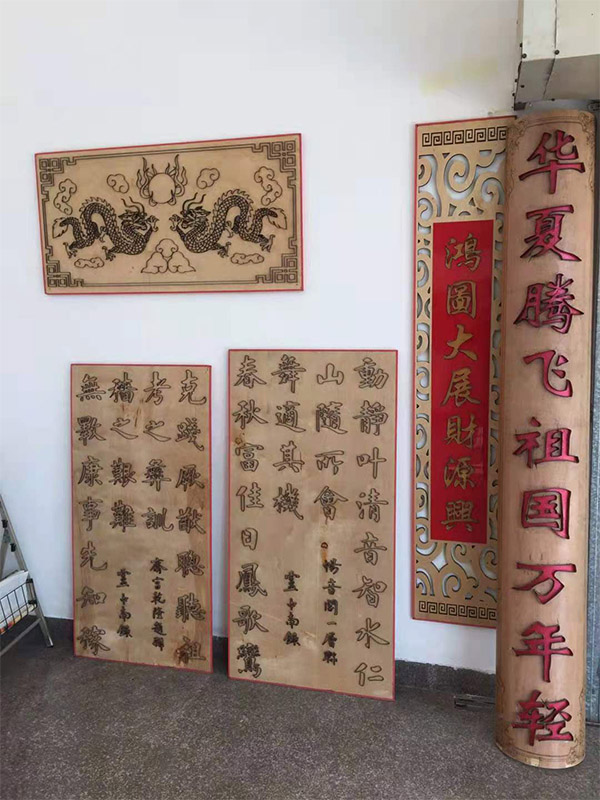 华夏腾飞祖国万年轻
鸿圖大展財源興
動靜叶清音智水仁
山隨所會
暢音閣一層聯
春秋富佳日鳳歌鸞
舞適其機
克踐厥猷聰聽祖
考之彝訓
齋宮乾隆題聯
無斁康事先知稼
穡之艱難